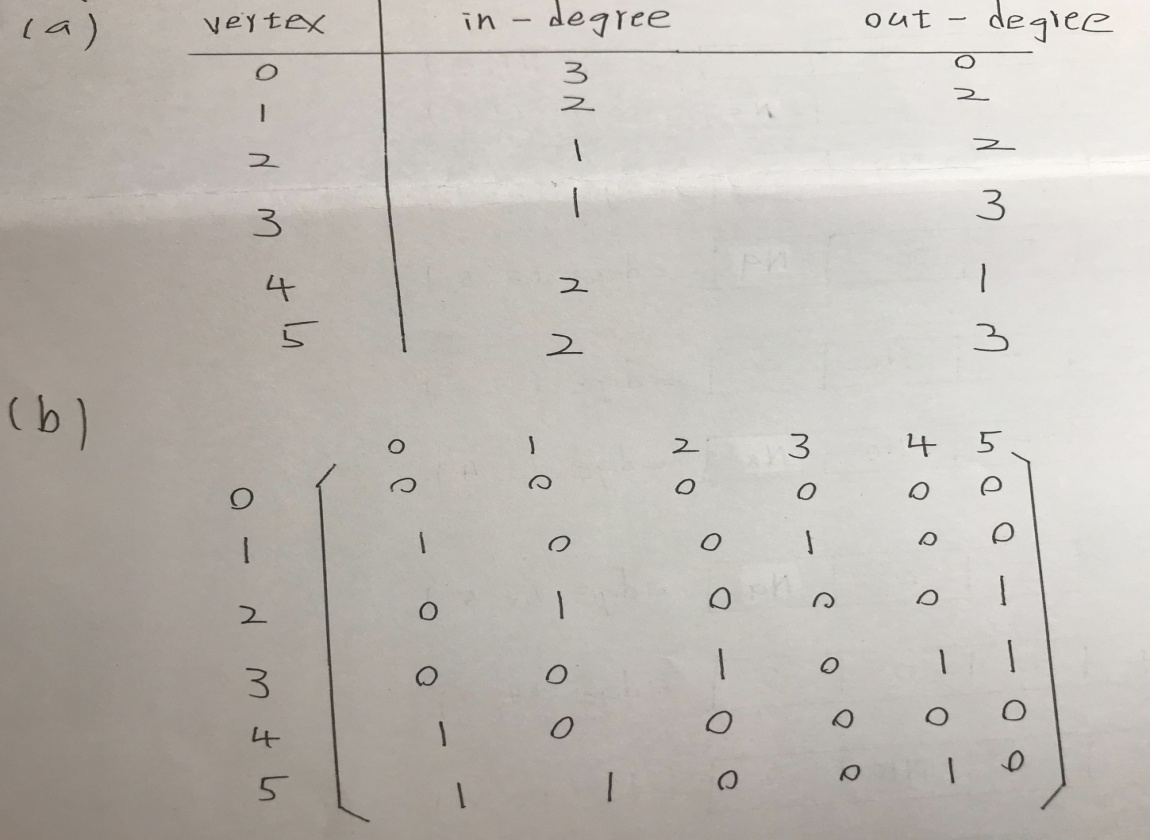 (a) vertex in-degree out-degree
0 3 0
1 2 2
2 1 2
3 1 3
4 2 1
5 2 3
(b)
0 1 2 3 4 5
0 0 0 0 0 0 0
1 1 0 0 1 0 0
2 0 1 0 0 0 1
3 0 0 1 0 1 1
4 1 0 0 0 0 0
5 1 1 0 0 1 0